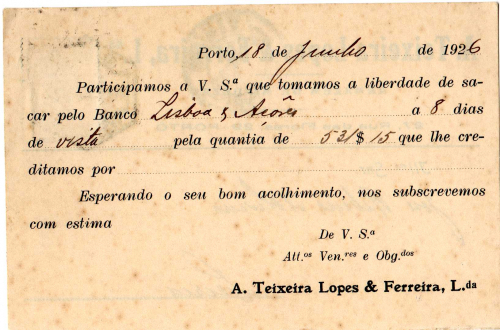 Porto, 18 de Junho de 1926
Participamos a V. S.ª que tomamos a liberdade de sa-
car pelo Banco Lisboa & Açôres a 8 dias
de vista pela quantia de 521$15 que lhe cre-
ditamos por
Esperando o seu bom acolhimento, nos subscrevemos
com estima
De V. S.ª
Att.os Ven.res e Obg.dos
A. Teixeira Lopes & Ferreira, L.da